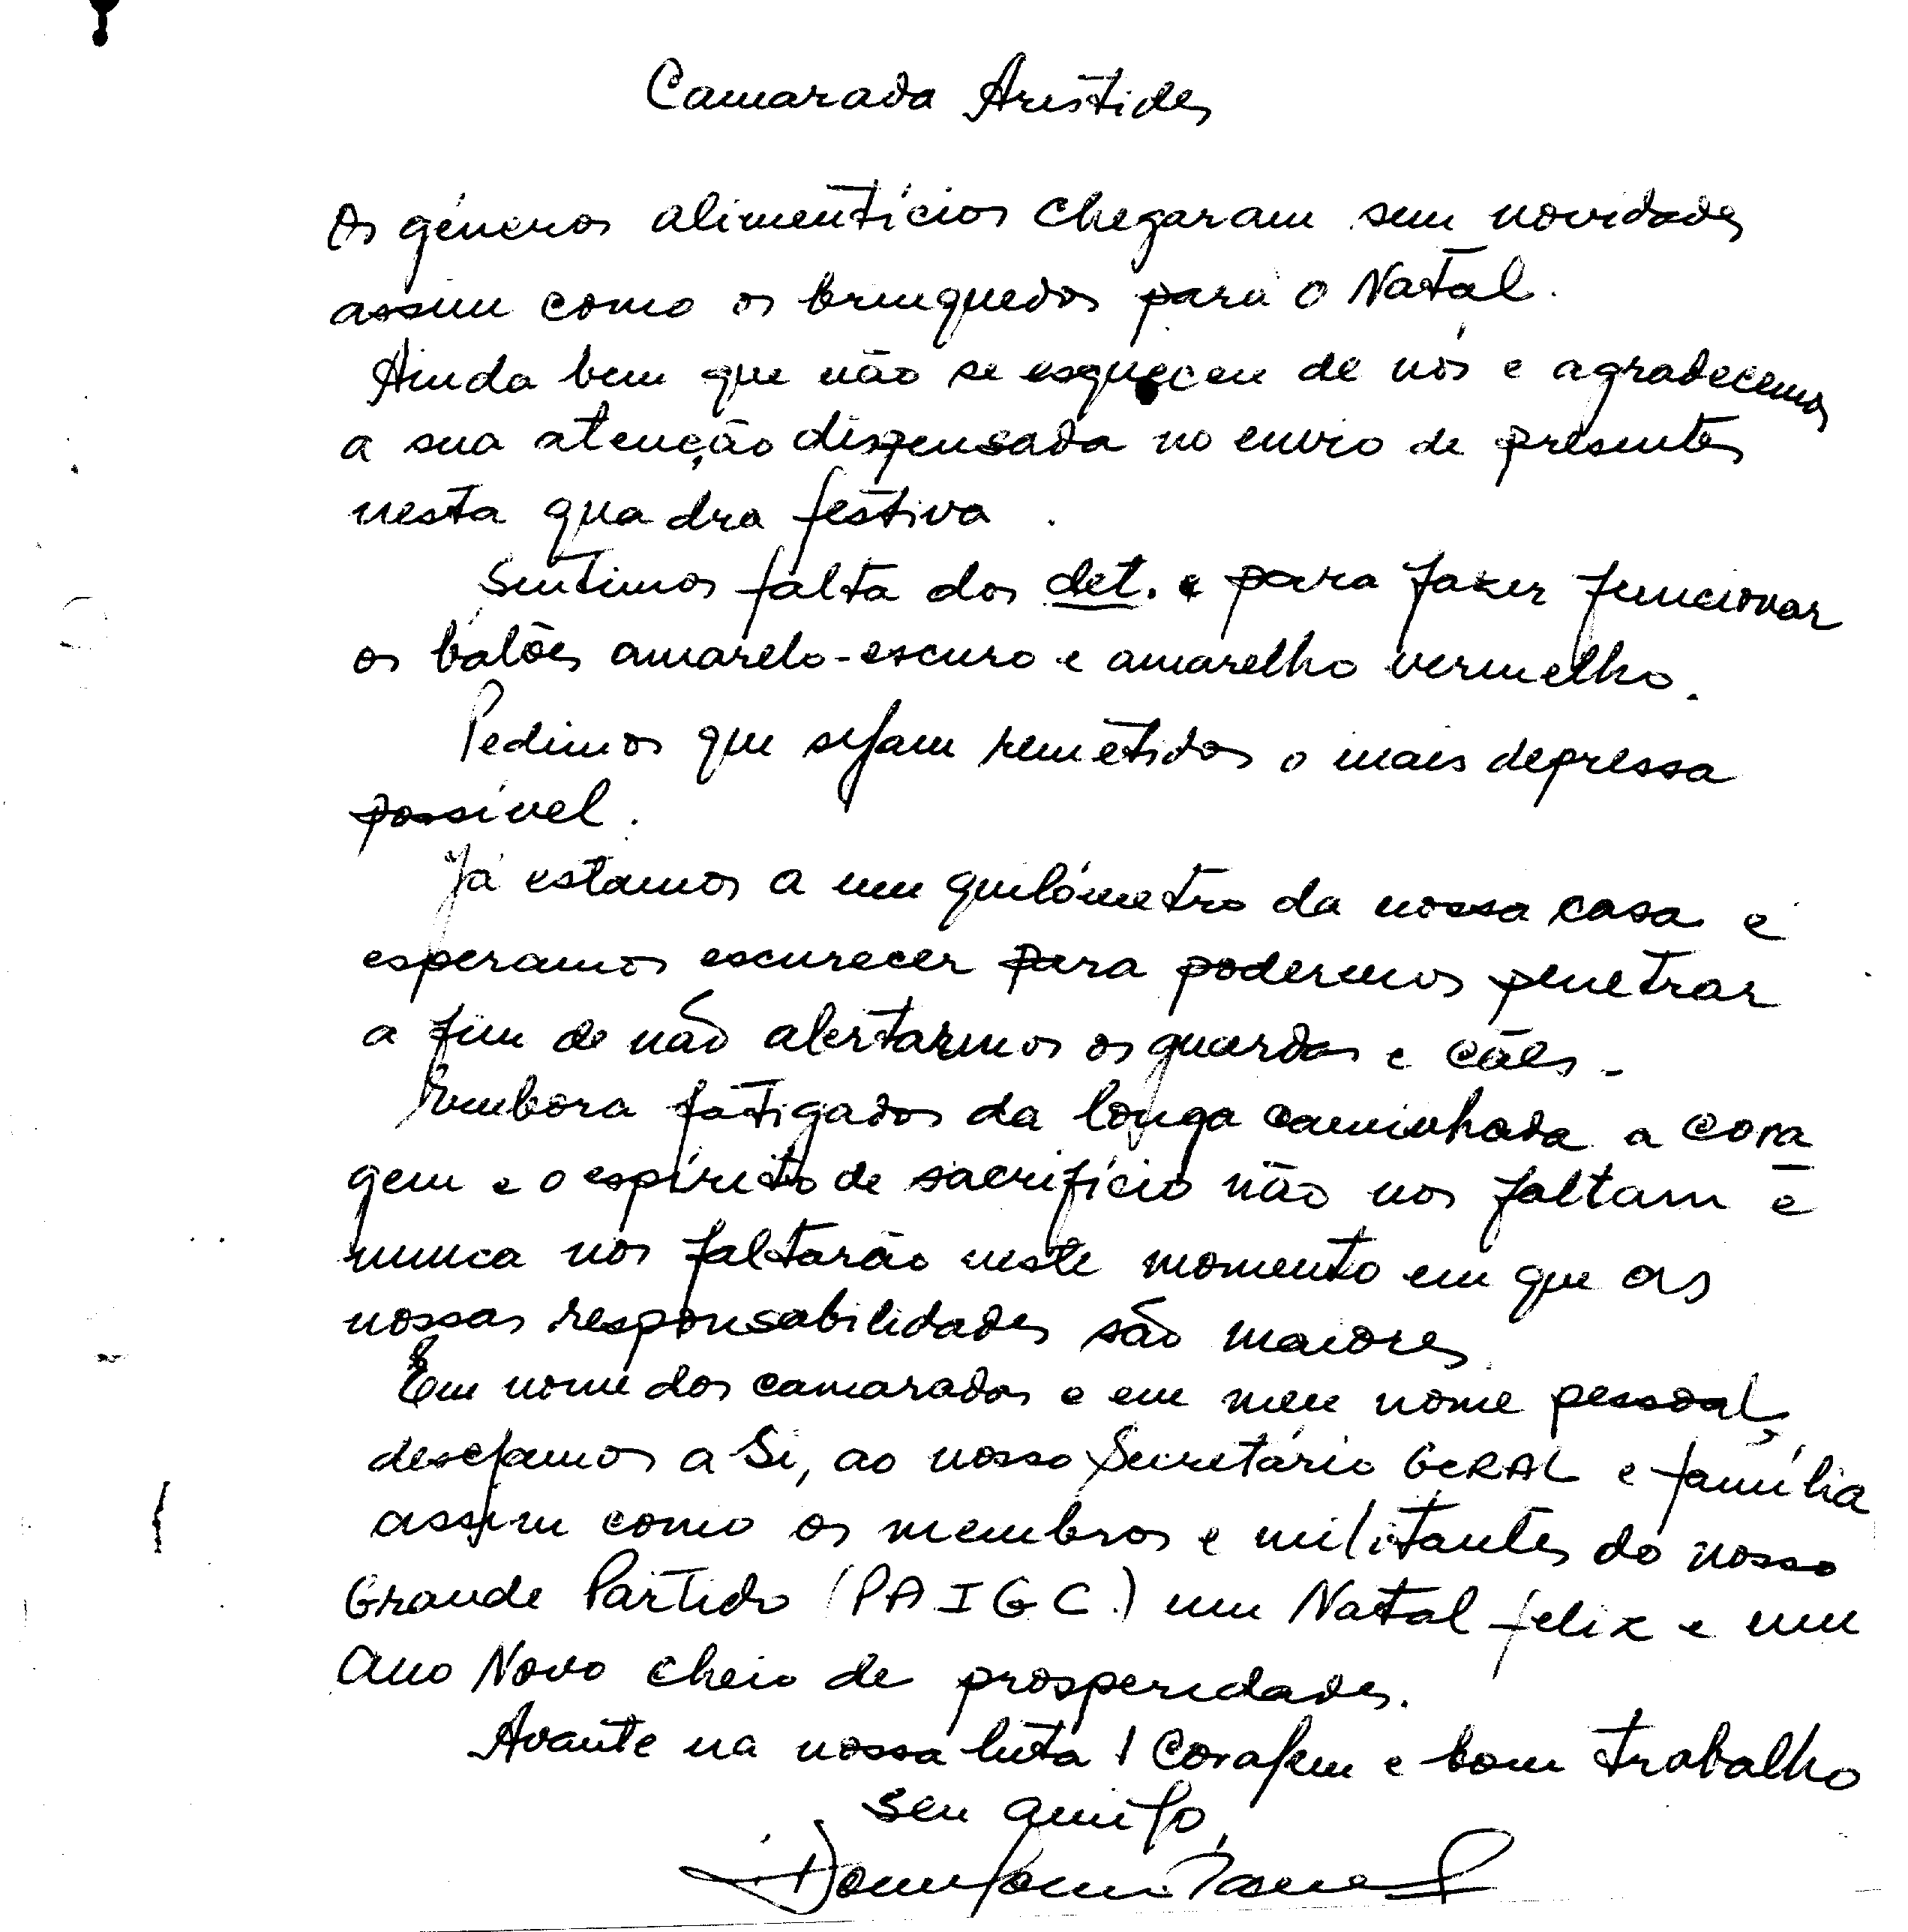 Camarada Aristides
Os géneros alimentícios chegaram sem novidades
assim como os brinquedos para o Natal.
Ainda bem que não se esqueceu de nós e agradecemos
a sua atenção dispensada no envio de presentes
nesta quadra festiva.
Sentimos falta dos det. e para fazer funcionar
os balões amarelo-escuro e amarelho vermelho.
Pedimos que sejam remetidos o mais depressa
possível.
Já estamos a um quilómetro da nossa casa e
esperamos escurecer para podermos penetrar
a fim de não alertarmos os guardas e cães.
Embora fatigados da longa caminhada a cora
gem e o espírito de sacrifício não nos faltam e
nunca nos faltarão neste momento em que as
nossas responsabilidades são maiores.
Em nome dos camaradas e em meu nome pessoal,
desejamos a Si, ao nosso Secretário GERAL e família
assim como os membros e militantes do nosso
Grande Partido (PAIGC.) um Natal feliz e um
Ano Novo cheio de prosperidades.
Avante na nossa luta! Coragem e bom trabalho
seu amigo,